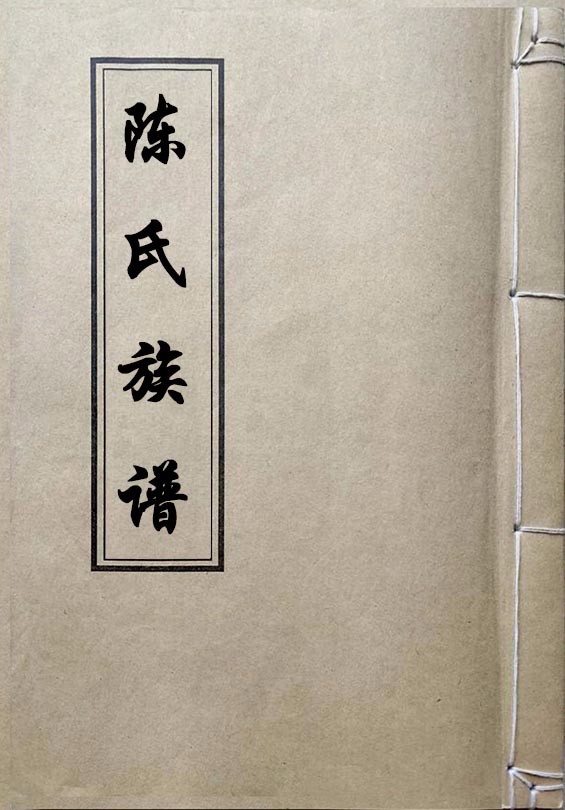 陈氏族谱